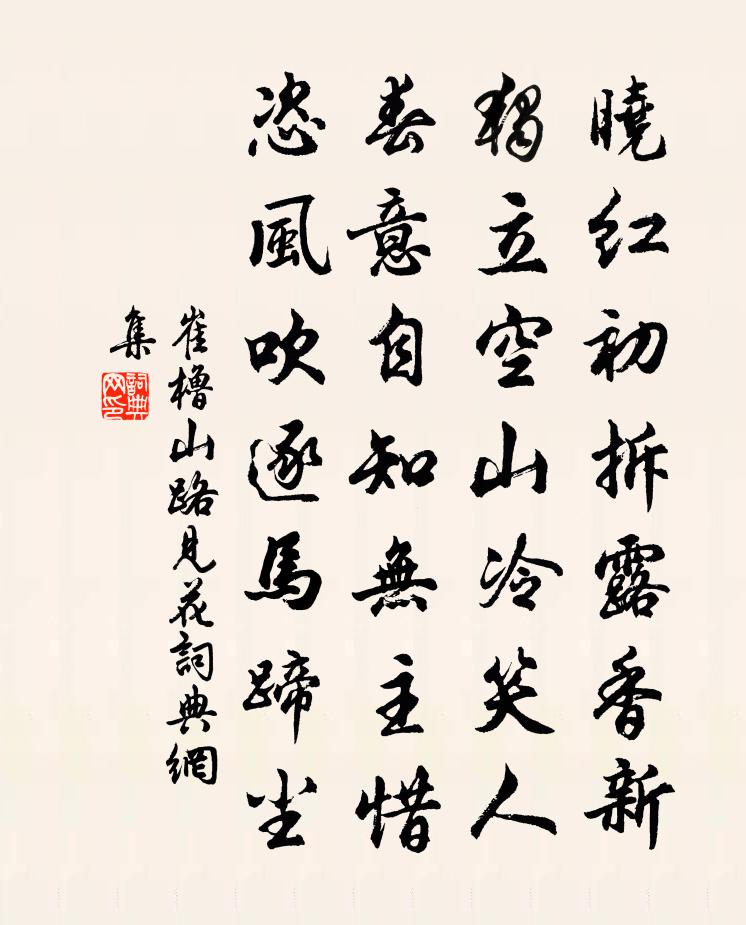 曉红初拆露香新
獨立空山冷笑人
春意自知無主惜
恣風吹逐馬蹄尘
崔櫓山路見花詞典網
集
詞典
网印